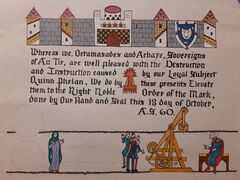 Whereas we, Octamasades and Aethare, Sovereigns
of An Tir, are well pleased with the Destruction
and Instruction caused by our Loyal Subject
Quinn Phelan, We do by these presents Elevate
them to the Right Noble Order of the Mark,
done by Our Hand and Seal this 18 day of October,
A.S. 60.